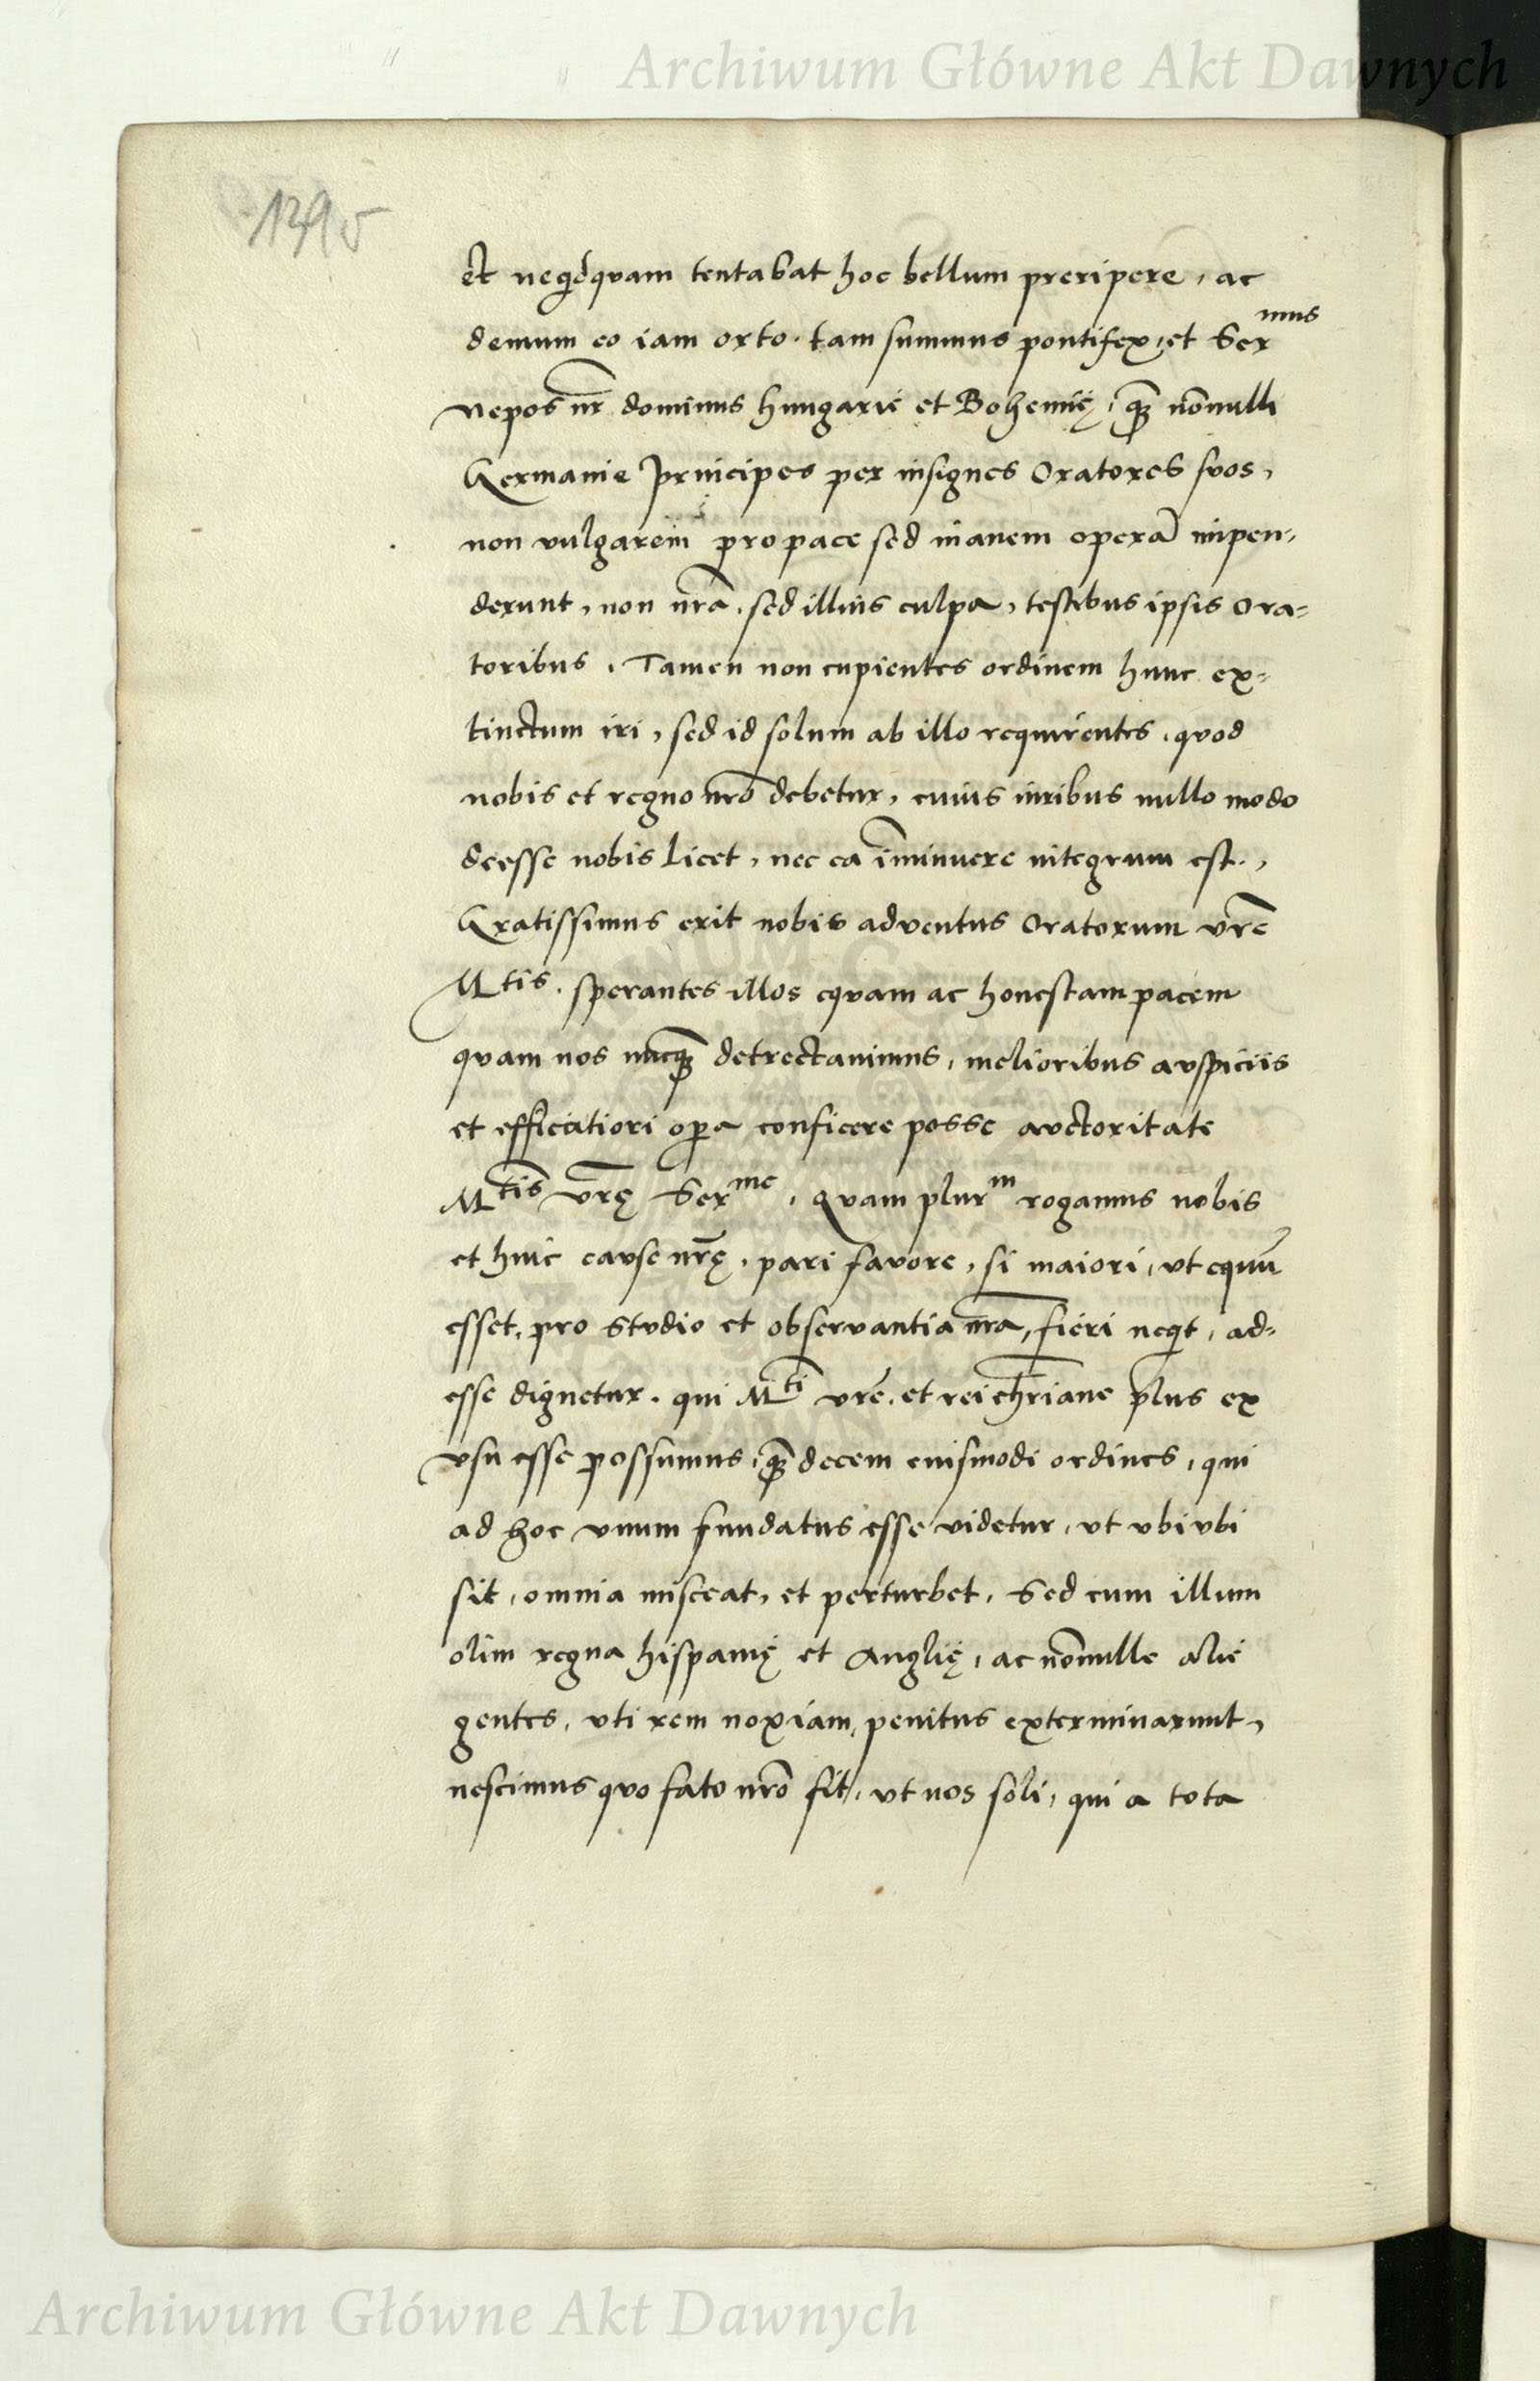 Archiwum Główne Akt Dawnych
139v
et neqdquam tentabat hoc bellum preripere, ac
demum eo iam orto. tam summus pontifex, et Ser<sup>mus</sup>
nepos nr̃ dominus hungarie et Bohemię, q̃ nõnulli
Germanie Principes per insignes Oratores suos,
non vulgarem pro pace sed inanem operã impen-
derunt, non nrã. sed illius culpa, testibus ipsis Ora-
toribus. Tamen non cupientes ordinem hunc ex-
tinctum iri, sed id solum ab illo requirentes. quod
nobis et regno nrõ debetur, cuius iuribus nullo modo
deesse nobis licet, nec ea im̃inuere integrum est.,
Gratissimus erit nobis adventus Oratorum vrẽ
M<sup>tis</sup>. sperantes illos equam ac honestam pacem
quam nos nũcq̃ detrectavimus, melioribus auspiciis
et efficatiori opa conficere posse auctoritate
M<sup>tis</sup> vrę̃ Ser<sup>me</sup>, Quam plur<sup>m</sup> rogamus nobis
et huic cause nrę̃, pari favore, si maiori, ut equũ
esset, pro studio et observantia nrã, fieri neqt, ad-
esse dignetur. qui M<sup>ti</sup> vrẽ. et rei chr̃iane plus ex
usu esse possumus, q̃ decem eiusmodi ordines, qui
ad hoc unum fundatus esse videtur, ut ubi ubi
sit, omnia misceat, et perturbet. Sed cum illum
olim regna hispanię et Anglię, ac nõnulle alie
gentes, uti rem noxiam, penitus exterminarunt,
nescimus quo fato nrõ fit, ut nos soli, qui a tota
Archiwum Główne Akt Dawnych